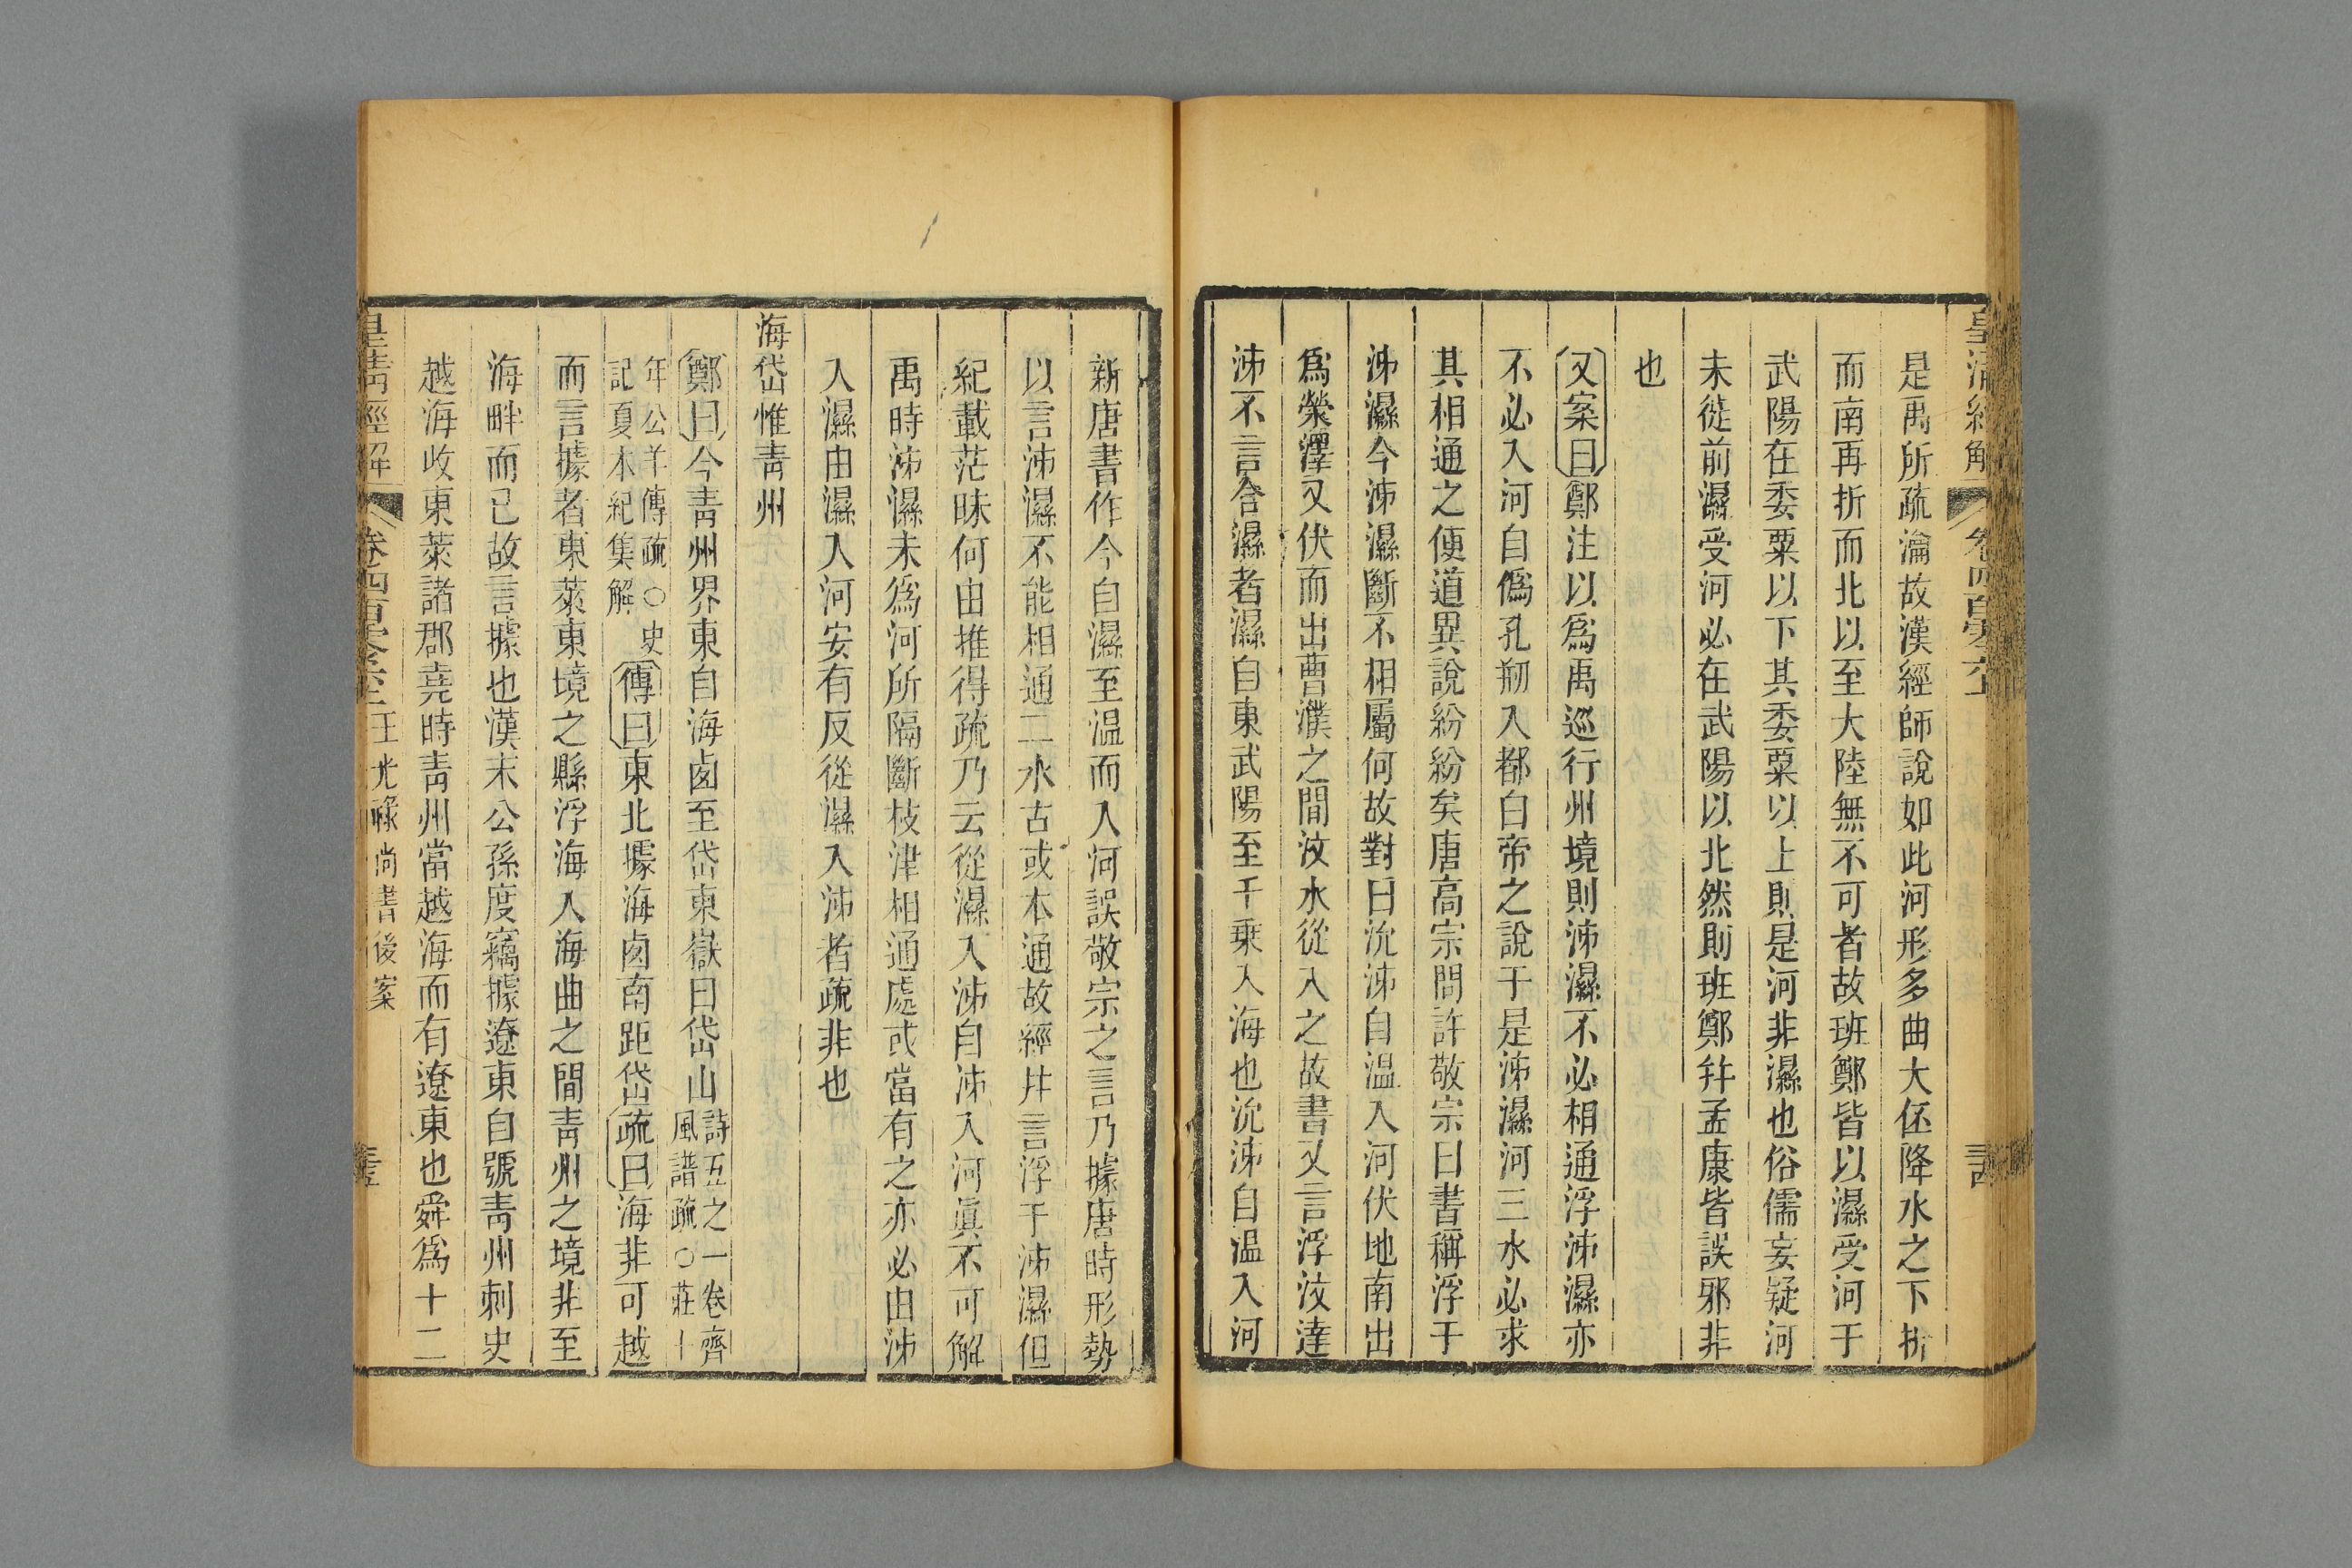 皇清經解 卷四百零六上
是禹所疏瀹故漢經師說如此河形多曲大伾降水之下折
而南再折而北以至大陸無不可者故班鄭皆以濕受河于
武陽在委粟以下其委粟以上則是河非濕也俗儒妄疑河
未徙前濕受河必在武陽以北然則班鄭幷孟康皆誤邪非
也
又案曰鄭注以爲禹巡行州境則泲濕不必相通浮泲濕亦
不必入河自僞孔剏入都白帝之說于是泲濕河三水必求
其相通之便道異說紛紛矣唐高宗問許敬宗曰書稱浮于
泲濕今泲濕斷不相屬何故對曰沇泲自温入河伏地南出
爲滎澤又伏而出曹濮之間汶水從入之故書又言浮汶達
泲不言合濕者濕自東武陽至千乗入海也沇泲自温入河
新唐書作今自濕至温而入河誤敬宗之言乃據唐時形勢
以言泲濕不能相通二水古或本通故經幷言浮于泲濕但
紀載茫昧何由推得疏乃云從濕入泲自泲入河眞不可解
禹時泲濕未爲河所隔斷枝津相通處或當有之亦必由泲
入濕由濕入河安有反從濕入泲者疏非也
海岱惟青州
鄭曰今青州界東自海西至岱東嶽曰岱山詩五之一卷齊
風譜疏○莊十
年公羊傳疏○史
記夏本紀集解傳曰東北據海西南距岱疏曰海非可越
而言據者東萊東境之縣浮海入海曲之間青州之境非至
海畔而已故言據也漢末公孫度竊據遼東自號青州刺史
越海收東萊諸郡堯時青州當越海而有遼東也舜爲十二
皇清經解 卷四百零六上 王光祿尚書後案